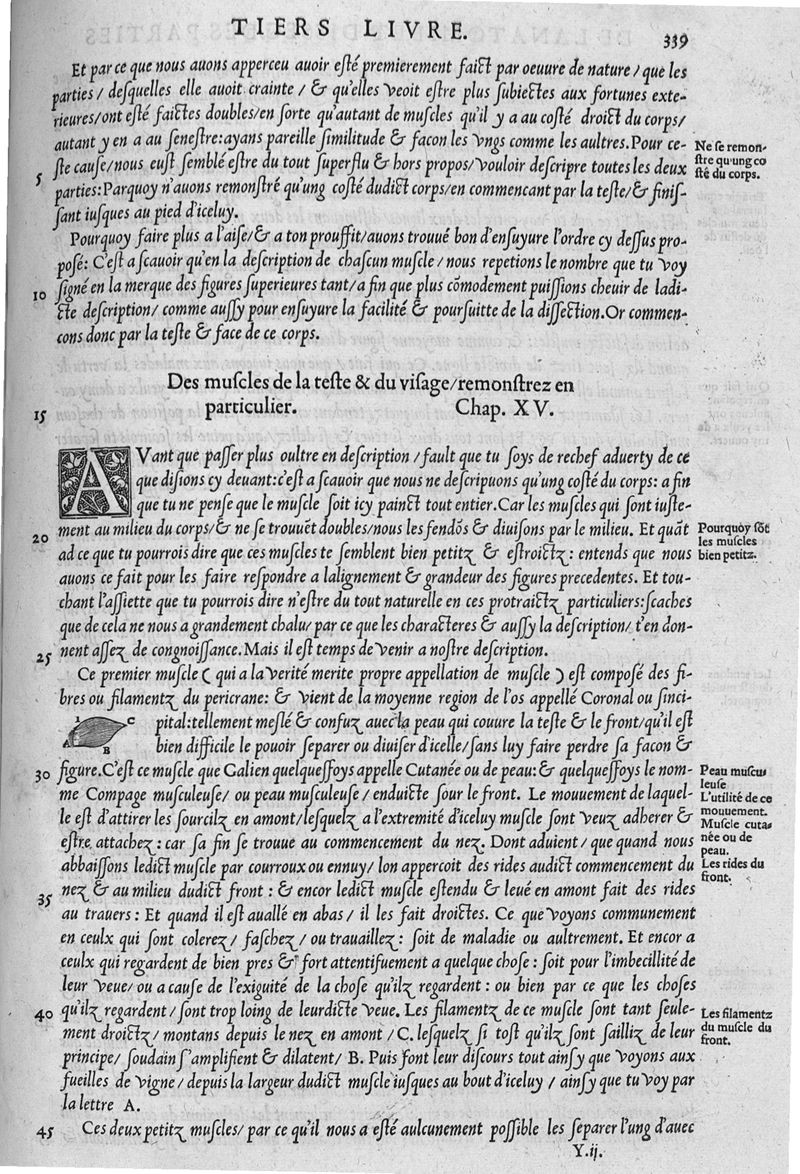 TIERS LIVRE.
339
Et par ce que nous auons apperceu auoir esté premierement faict par oeuure de nature / que les
parties / desquelles elle auoit crainte / & qu'elles veoit estre plus subiectes aux fortunes exte-
rieures/ont esté faictes doubles/en sorte qu'autant de muscles qu'il y a au costé droict du corps/
autant y en a au senestre:ayans pareille similitude & facon les vngs comme les aultres.Pour ce-
ste cause/nous eust semblé estre du tout superflu & hors propos/vouloir descripre toutes les deux
parties:Parquoy n'auons remonstré qu'ung costé dudict corps/en commencant par la teste/& finis-
sant iusques au pied d'iceluy.
Ne se remon-
stre qu'ung co
sté du corps.
5
Pourquoy faire plus a l'aise/& a ton prouffit/auons trouué bon d'ensuyure l'ordre cy dessus pro-
posé: C'est a scauoir qu'en la description de chascun muscle / nous repetions le nombre que tu voy
signé en la merque des figures superieures tant/a fin que plus cōmodement puissions cheuir de ladi-
cte description/ comme aussy pour ensuyure la facilité & poursuitte de la dissection.Or commen-
cons donc par la teste & face de ce corps.
10
Des muscles de la teste & du visage/remonstrez en
particulier. Chap. XV.
15
AVant que passer plus oultre en description / fault que tu soys de rechef aduerty de ce
que disions cy deuant:c'est a scauoir que nous ne descripuons qu'ung costé du corps: a fin
que tu ne pense que le muscle soit icy painct tout entier.Car les muscles qui sont iuste-
ment au milieu du corps/& ne se trouuēt doubles/nous les fendōs & diuisons par le milieu. Et quāt
ad ce que tu pourrois dire que ces muscles te semblent bien petitz & estroictz: entends que nous
auons ce fait pour les faire respondre a lalignement & grandeur des figures precedentes. Et tou-
chant l'assiette que tu pourrois dire n'estre du tout naturelle en ces protraictz particuliers:scaches
que de cela ne nous a grandement chalu/ par ce que les characteres & aussy la description/ t'en don-
nent assez de congnoissance.Mais il est temps de venir a nostre description.
20
Pourquoy sōt
les muscles
bien petitz.
25
Ce premier muscle ( qui a la verité merite propre appellation de muscle ) est composé des fi-
bres ou filamentz du pericrane: & vient de la moyenne region de l'os appellé Coronal ou sinci-
pital:tellement meslé & confuz auec la peau qui couure la teste & le front/qu'il est
bien difficile le pouoir separer ou diuiser d'icelle/sans luy faire perdre sa facon &
I
C
A
B
figure.C'est ce muscle que Galien quelquessoys appelle Cutanée ou de peau:& quelquessoys le nom-
me Compage musculeuse/ ou peau musculeuse/ enduicte sour le front. Le mouuement de laquel-
le est d'attirer les sourcilz en amont/lesquelz a l'extremité d'iceluy muscle sont veuz adherer &
estre attachez: car sa fin se trouue au commencement du nez. Dont aduient / que quand nous
abbaissons ledict muscle par courroux ou ennuy/ lon appercoit des rides audict commencement du
nez & au milieu dudict front : & encor ledict muscle estendu & leué en amont fait des rides
au trauers : Et quand il est auallé en abas / il les fait droictes. Ce que voyons communement
en ceulx qui sont colerez/ faschez / ou trauaillez: soit de maladie ou aultrement. Et encor a
ceulx qui regardent de bien pres & fort attentifuement a quelque chose : soit pour l'imbecillité de
leur veue/ ou a cause de l'exiguité de la chose qu'ilz regardent : ou bien par ce que les choses
qu'ilz regardent / sont trop loing de leurdicte veue. Les filamentz de ce muscle sont tant seule-
ment droictz / montans depuis le nez en amont / C. lesquelz si tost qu'ilz sont sailliz de leur
principe/ soudain s'amplifient & dilatent / B. Puis font leur discours tout ainsy que voyons aux
fueilles de vigne / depuis la largeur dudict muscle iusques au bout d'iceluy / ainsy que tu voy par
la lettre A.
30
Peau muscu
leuse
L'utilité de ce
mouuement.
Muscle cuta-
née ou de
peau.
Les rides du
front.
35
40
Les filamentz
du muscle du
front.
45
Ces deux petitz muscles/ par ce qu'il nous a esté aulcunement possible les separer l'ung d'auec
Y.ij.